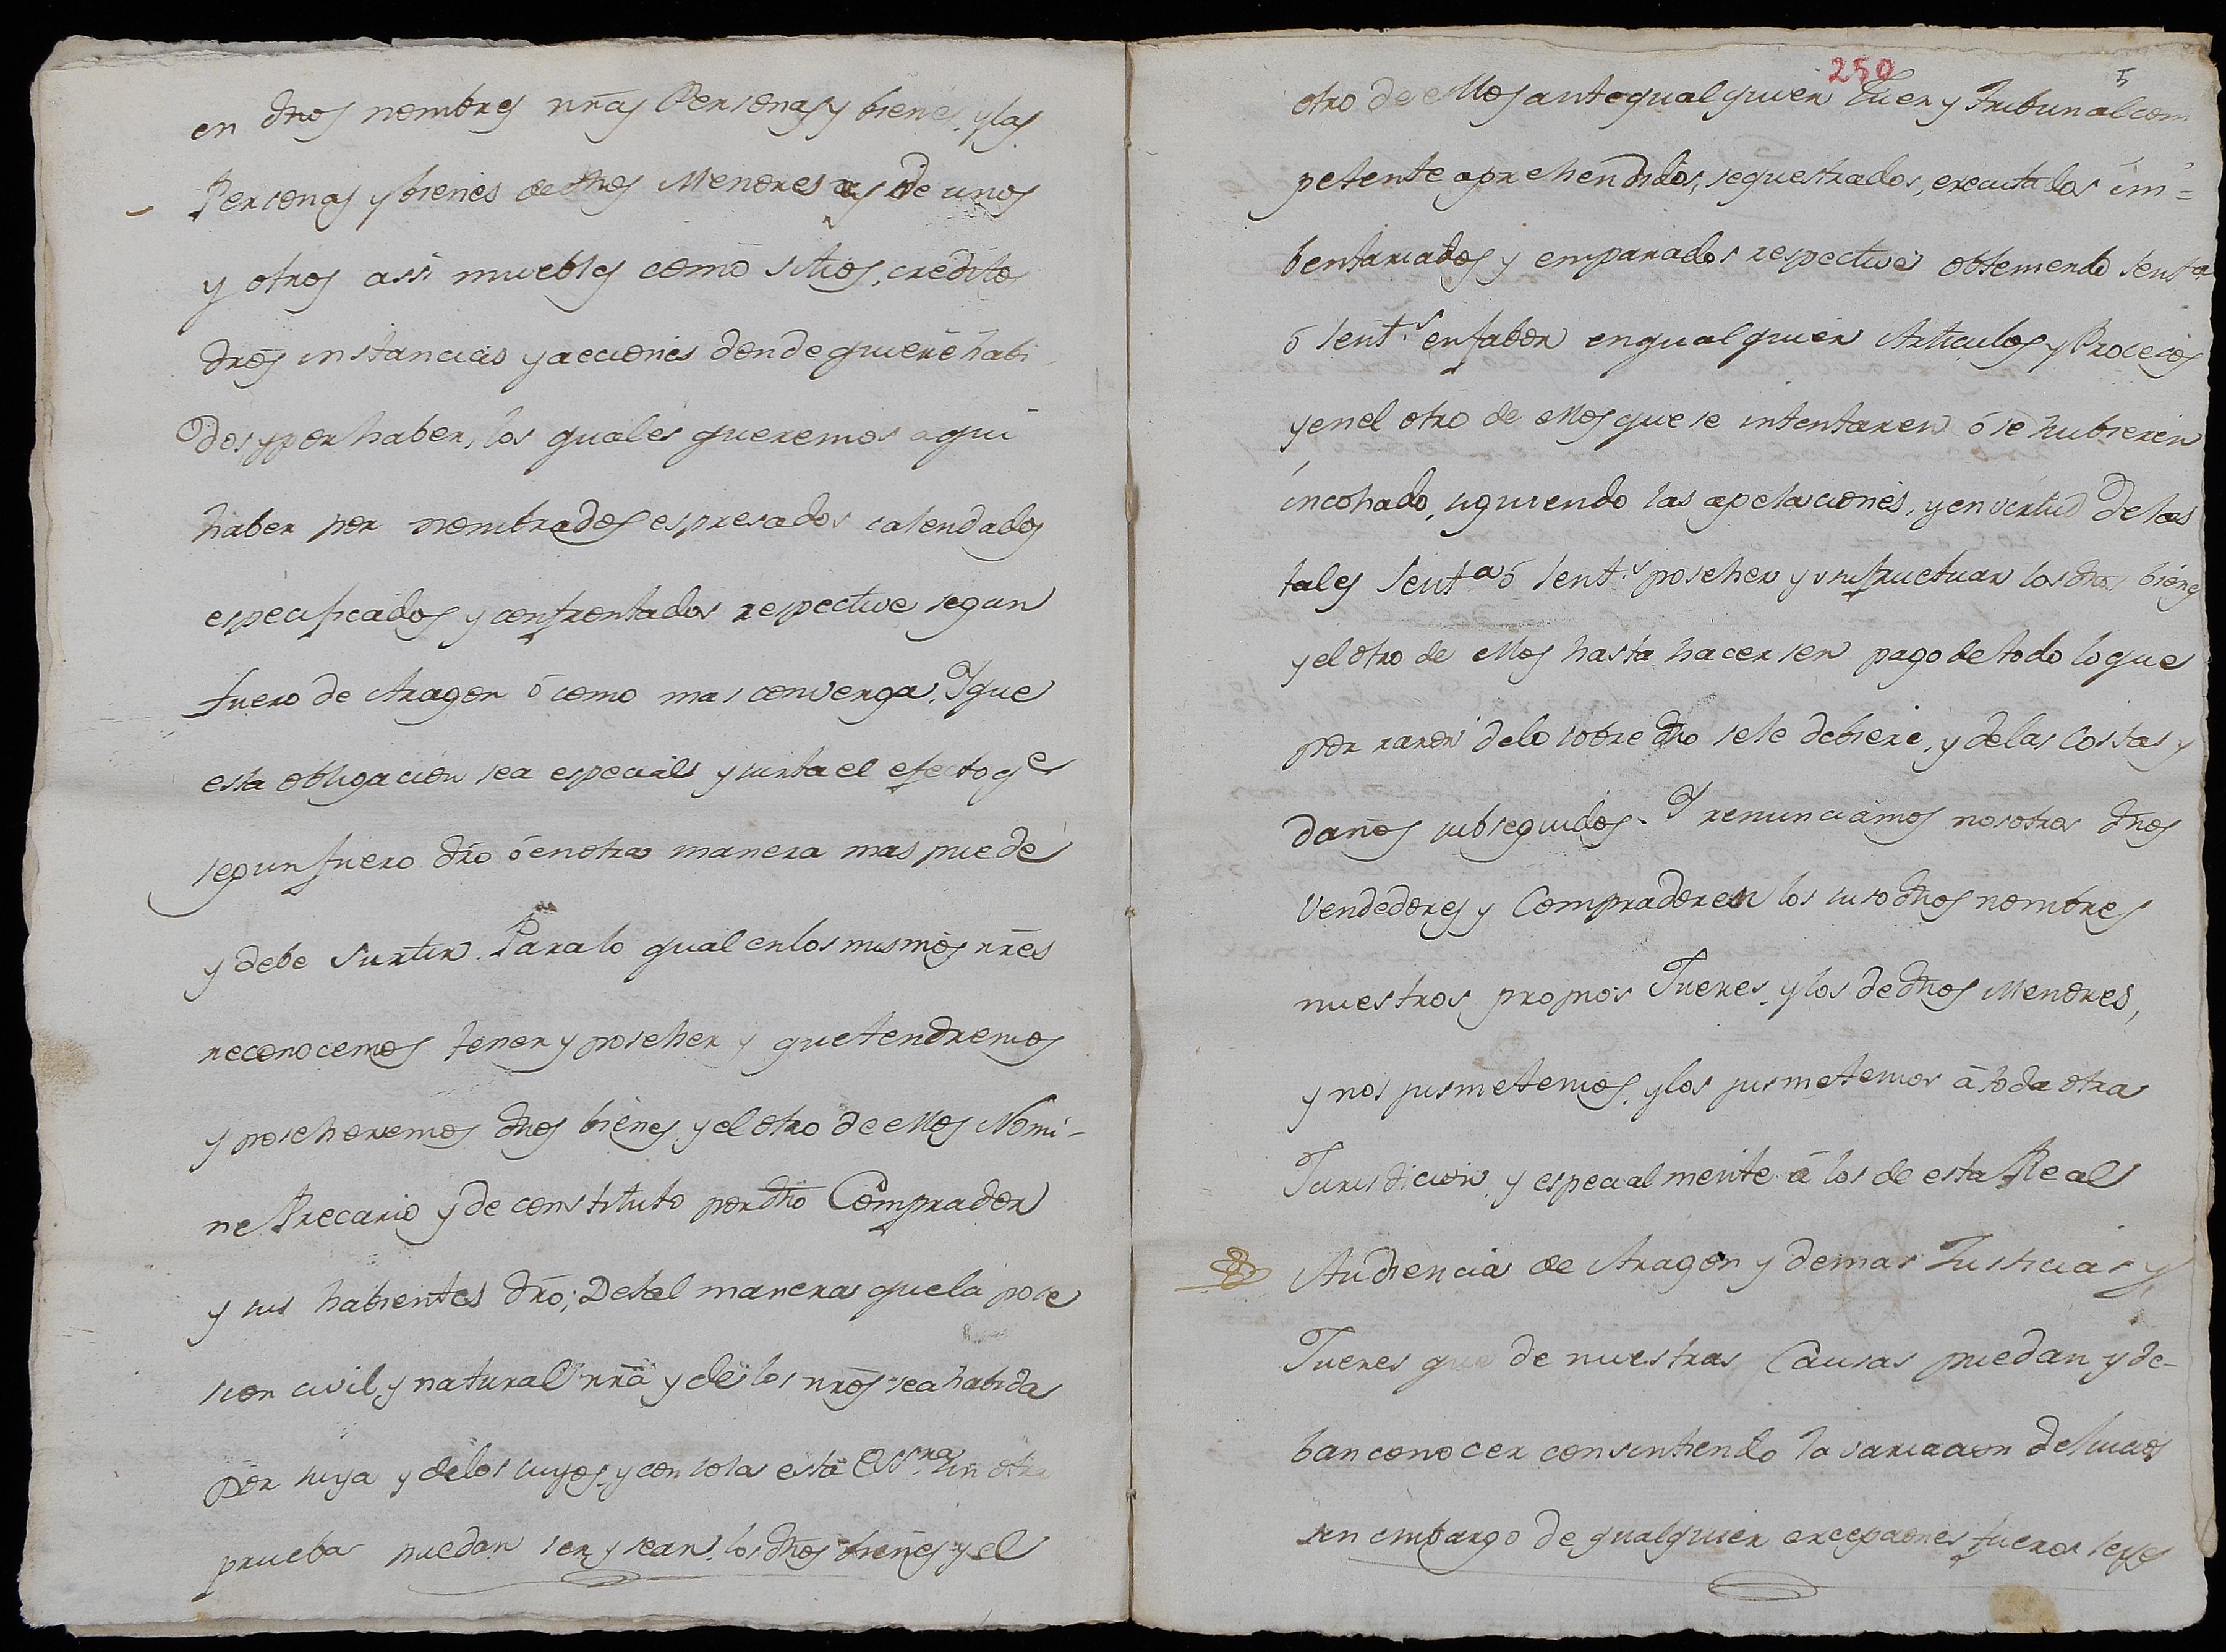 en dhos nombres nr̃as Personas y bienes, y las
Personas y bienes de dhos Menores as de unos
y otros assi muebles como sitios, creditos
dros instancias y acciones donde quiere habi
dos y por haber, los quales queremos aqui
haber por nombrados espresados calendados
especificados y confrontados respective segun
fuero de Aragon ó como mas convenga. Y que
esta obligacion sea especial y surta el efecto qe
segun fuero dro ó en otra manera mas puede
y debe surtir. Para lo qual en los mismos nr̃es
reconocemos tener y poseher y que tendremos
y poseheremos dhos bienes y el otro de ellos Nomi-
ne Precario y de constituto por dho Comprador
y sus habientes dro; De tal manera que la pose
sion civil y natural nr̃a y de los nr̃os sea habida
por suya y de los suyos, y con sola esta Essra sin otra
prueba puedan ser y sean los dhos bienes y el
250
5
otro de ellos ante qualquier Juez y Tribunal com
petente aprehendidos, sequestrados, executados im=
bentariados y emparados respective obteniendo senta
ó sents en fabor en qualquier Articulos y Procesos
y en el otro de ellos que se intentaren ó se hubieren
incohado, siguiendo las apelaciones, y en virtud de las
tales senta ó sents poseher y usufructuar los dhos bienes
y el otro de ellos hasta hacersen pago de todo lo que
por razon de lo sobre dho se le debiere, y de las costas y
daños subseguidos. Y renunciamos nosotros dhos
Vendedores y Comprador en los suso dhos nombres
nuestros propios Jueces, y los de dhos Menores,
y nos jusmetemos, y los jusmetemos á toda otra
Jurisdicion y especialmente á los de esta Real
Audiencia de Aragon y demas Justicias y
Jueces que de nuestras Causas puedan y de-
ban conocer consintiendo la variacion de Juicio
sin embargo de qualquier excepciones fueros leyes